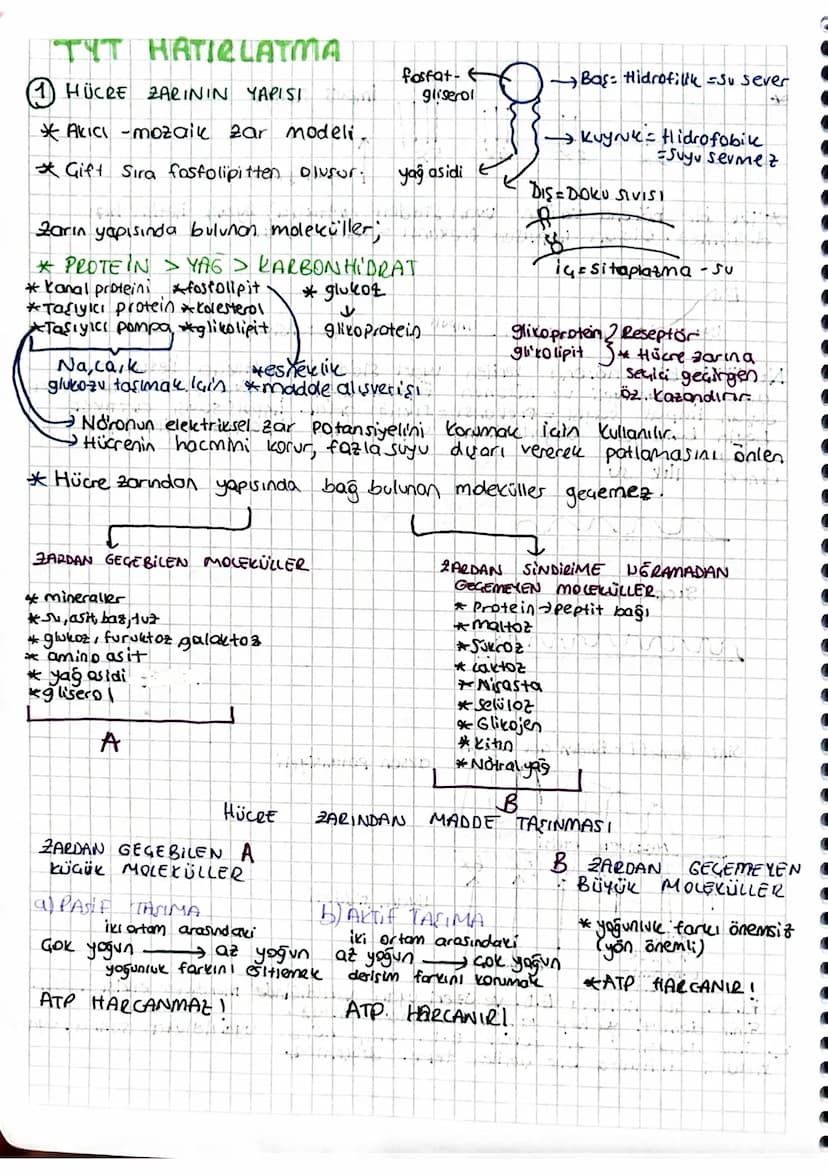 TYT HATIRLATMA
① HÜCRE ZARININ YAPISI
* Akıcı - mozaik zar modeli.
* Çift sıra fosfolipitten oluşur.
fosfat-gliserol
→ Baş = Hidrofilik = su sever
→ Kuyruk = Hidrofobik = suyu sevmez
yağ asidi
DIŞ = DOKU SIVISI
İÇ = sitoplazma - su
Zarın yapısında bulunan moleküller;
* PROTEİN > YAĞ > KARBONHİDRAT
* Kanal proteini *fosfolipit * glukoz
* Taşıyıcı protein * kolesterol ↓
* Taşıyıcı pompa * glikolipit glikoprotein
glikoprotein } Reseptör
glikolipit } * Hücre zarına
seçici geçirgen
öz. kazandırır
Na, Ca, K *esneklik
glukozu taşımak için *madde alışverişi
→ Nöronun elektriksel zar potansiyelini korumak için kullanılır.
→ Hücrenin hacmini korur, fazla suyu dışarı vererek patlamasını önler
* Hücre zarından yapısında bağ bulunan moleküller geçemez.
ZARDAN GEÇEBİLEN MOLEKÜLLER
* mineraller
* su, asit, baz, tuz
* glukoz, furuktoz galaktoz
* amino asit
* yağ asidi
* gliserol
A
ZARDAN SİNDİRİME UĞRAMADAN
GEÇEMEYEN MOLEKÜLLER
* Protein → peptit bağı
* maltoz
* Sükroz
* Laktoz
* Nişasta
* Selüloz
* Glikojen
* Kitin
* Nötral yağ
B
HÜCRE ZARINDAN MADDE TAŞINMASI
ZARDAN GEÇEBİLEN A
KÜÇÜK MOLEKÜLLER
a) PASİF TAŞIMA
iki ortam arasındaki
Çok yoğun → az yoğun
yoğunluk farkını eşitlemek
ATP HARCANMAZ!
b) AKTİF TAŞIMA
iki ortam arasındaki
az yoğun → çok yoğun
derişim farkını korumak
ATP HARCANIR!
B ZARDAN GEÇEMEYEN
BÜYÜK MOLEKÜLLER
* yoğunluk farkı önemsiz
(yön önemli)
* ATP HARCANIR!